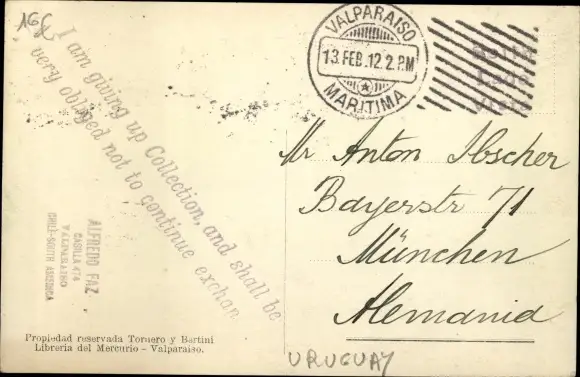 168
I am giving up Collection, and shall be
very obliged not to continue exchan
ALFREDO FAZ
CASILLA 474
VALPARAISO
CHILE-SOUTH AMERICA
Propiedad reservada Tornero y Bertini
Libreria del Mercurio - Valparaiso.
VALPARAISO
13 FEB. 12 2 PM
MARITIMA
Lado
Vista
Mr Anton Ibscher
Bayerstr 71
München
Alemania
URUGUAY